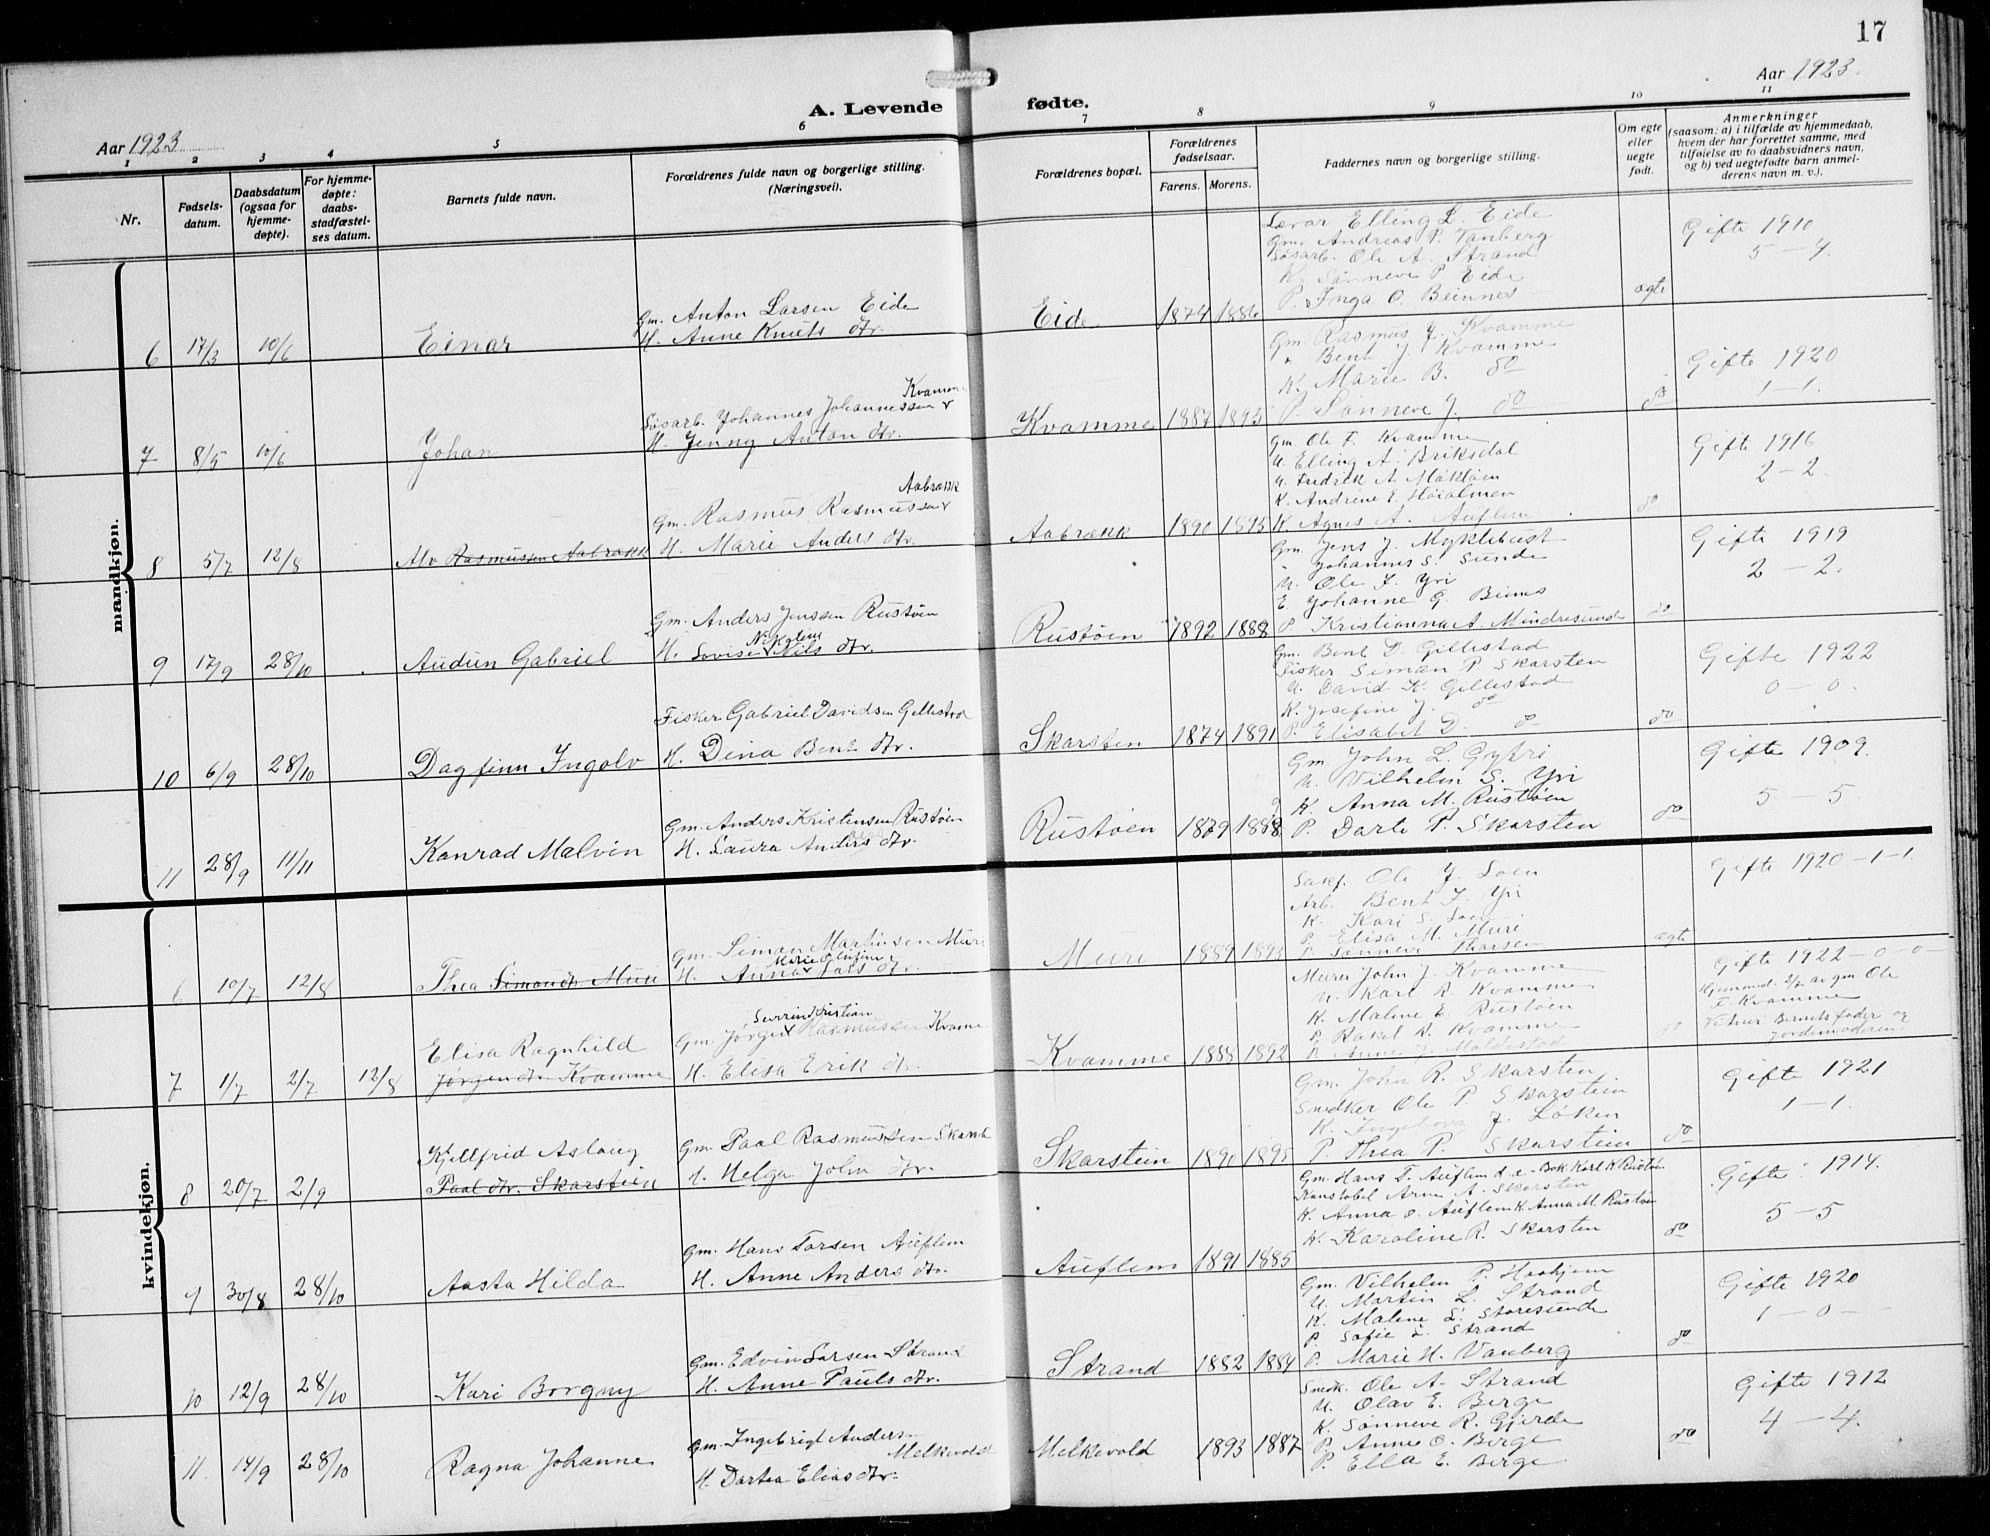 17
Aar 1923.
A. Levende fødte.
Aar 1923
1 2 3 4 5 6 7 8 9 10 11
Nr.
Fødsels-
datum.
Daabsdatum
(ogsaa for
hjemme-
døpte).
For hjemme-
døpte:
daabs-
stadfæstel-
ses datum.
Barnets fulde navn.
Forældrenes fulde navn og borgerlige stilling.
(Næringsvei).
Forældrenes bopæl.
Forældrenes
fødselsaar.
Farens. Morens.
Faddernes navn og borgerlige stilling.
Om egte
eller
uegte
født.
Anmerkninger
(saasom: a) i tilfælde av hjemmedaab,
hvem der har forrettet samme, med
tilføielse av to daabsvidners navn.
og b) ved uegtefødte barn anmel-
derens navn m. v.).
mandkjøn.
6 17/3 10/6 Einar
Gm. Anton Larsen Eide
H. Anne Knuts dtr.
Eide 1874 1886
Lærar Elling L. Eide
Gm. Andreas P. Vanberg
Løsarb. Ole A. Strand
K. Sønneve P. Eide
P. Inga O. Beinnes
ægte
Gifte 1910
5 – 4.
7 8/5 10/6 Johan
Kvamme
Løsarb. Johannes Johannessen
H. Jenny Anton dtr.
Kvamme 1887 1895
Gm. Rasmus J. Kvamme
" Bent J. Kvamme
K. Marie B. do
P. Sønneve J. do
do
Gifte 1920
1 – 1.
8 5/7 12/8 Alv Rasmussen Aabrekk
Aabrekk
Gm. Rasmus Rasmussen
H. Marie Anders dtr.
Aabrekk 1890 1895
Gm. Ole T. Kvamme
U. Elling A. Briksdal
U. Fredrik A. Møkløen
K. Andrine E. Høialmen
K. Agnes A. Auflem
do
Gifte 1916
2 – 2.
9 17/9 28/10 Audun Gabriel
Gm. Anders Jenssen Rustøen
Nikoline
H. Lovise Nils dtr.
Rustøen 1892 1888
Gm. Jens J. Myklebust
" Johannes S. Sunde
U. Ole J. Yri
E. Johanne G. Binnes
P. Kristianna A. Mindresunde
do
Gifte 1919
2 – 2.
10 6/9 28/10 Dagfinn Ingolv
Fisker Gabriel Davidsen Gillestad
H. Dina Bent dtr.
Skarsten 1874 1891
Gm. Bent D. Gillestad
Fisker Siman P. Skarsten
U. David K. Gillestad
K. Josefine J. do
P. Elisabet D. do
do
Gifte 1922
0 – 0.
11 28/9 11/11 Konrad Malvin
Gm. Anders Kristensen Rustøen
H. Laura Anders dtr.
Rustøen 1879 1888
Gm. John L. Gytri
U. Vilhelm S. Yri
K. Anna M. Rustøen
P. Darte P. Skarsten
do
Gifte 1909.
5 – 5.
kvindekjøn.
6 10/7 12/8 Thea Simondtr Muri
Gm. Simon Martinsen Muri
Marie Olufine
H. Anna Lars dtr.
Muri 1889 1893
Sakf. Ole J. Loen
Arb. Bent J. Yri
K. Kari S. Loen
P. Elisa M. Muri
P. Sønneve Tharsen
ægte
Gifte 1920 – 1 – 1.
7 1/7 2/7 12/8 Elisa Ragnhild
Jørgendtr Kvamme
Severin Kristian
Gm. Jørgen Rasmussen Kvamme
H. Elisa Erik dtr.
Kvamme 1888 1892
Murer John J. Kvamme
U. Karl R. Kvamme
K. Malene E. Rustøen
P. Rakel R. Kvamme
P. Anne J. Moldestad
do
Gifte 1922 – 0 – 0 –
Hjemmed. 2/7 av gm Ole
T. Kvamme
Vitner Barnets fader og
Jordemoderen.
8 20/7 2/9 Kjellfrid Aslaug
Paal dtr. Skarstein
Gm. Paal Rasmussen Skarst
H. Helga John dtr.
Skarstein 1890 1895
Gm. John R. Skarsten
Snedker Ole P. Skarstein
K. Ingeborg J. Løken
P. Thea P. Skarstein
do
Gifte 1921
1 – 1.
9 30/8 28/10 Aasta Hilda
Gm. Hans Torsen Auflem
H. Anne Anders dtr.
Auflem 1891 1885
Gm. Hans T. Auflem d.e. – Bok Karl K Rustøen
Konstabel Arne A. Skarsten
K. Anna O. Auflem K. Anna M. Rustøen
K. Karoline R. Skarsten
do
Gifte 1914.
5 – 5
10 12/9 28/10 Kari Borgny
Gm. Edvin Larsen Strand
H. Anne Pauls dtr.
Strand 1882 1884
Gm. Vilhelm P. Haahjem
U. Martin L. Strand
K. Malene L. Storesunde
P. Sofie L. Strand
P. Marie H. Vanberg
do
Gifte 1920
1 – 0 –
11. 14/9 28/10 Ragna Johanne
Gm. Ingebrigt Anders
Melkevold
H. Dartea Elias dtr.
Melkevold 1893 1887
Snedk. Ole A. Strand
U. Olav E. Berge
K. Sønneve R. Gjerde
P. Anne O. Berge
P. Ella E. Berge.
do
Gifte 1912
4 – 4.